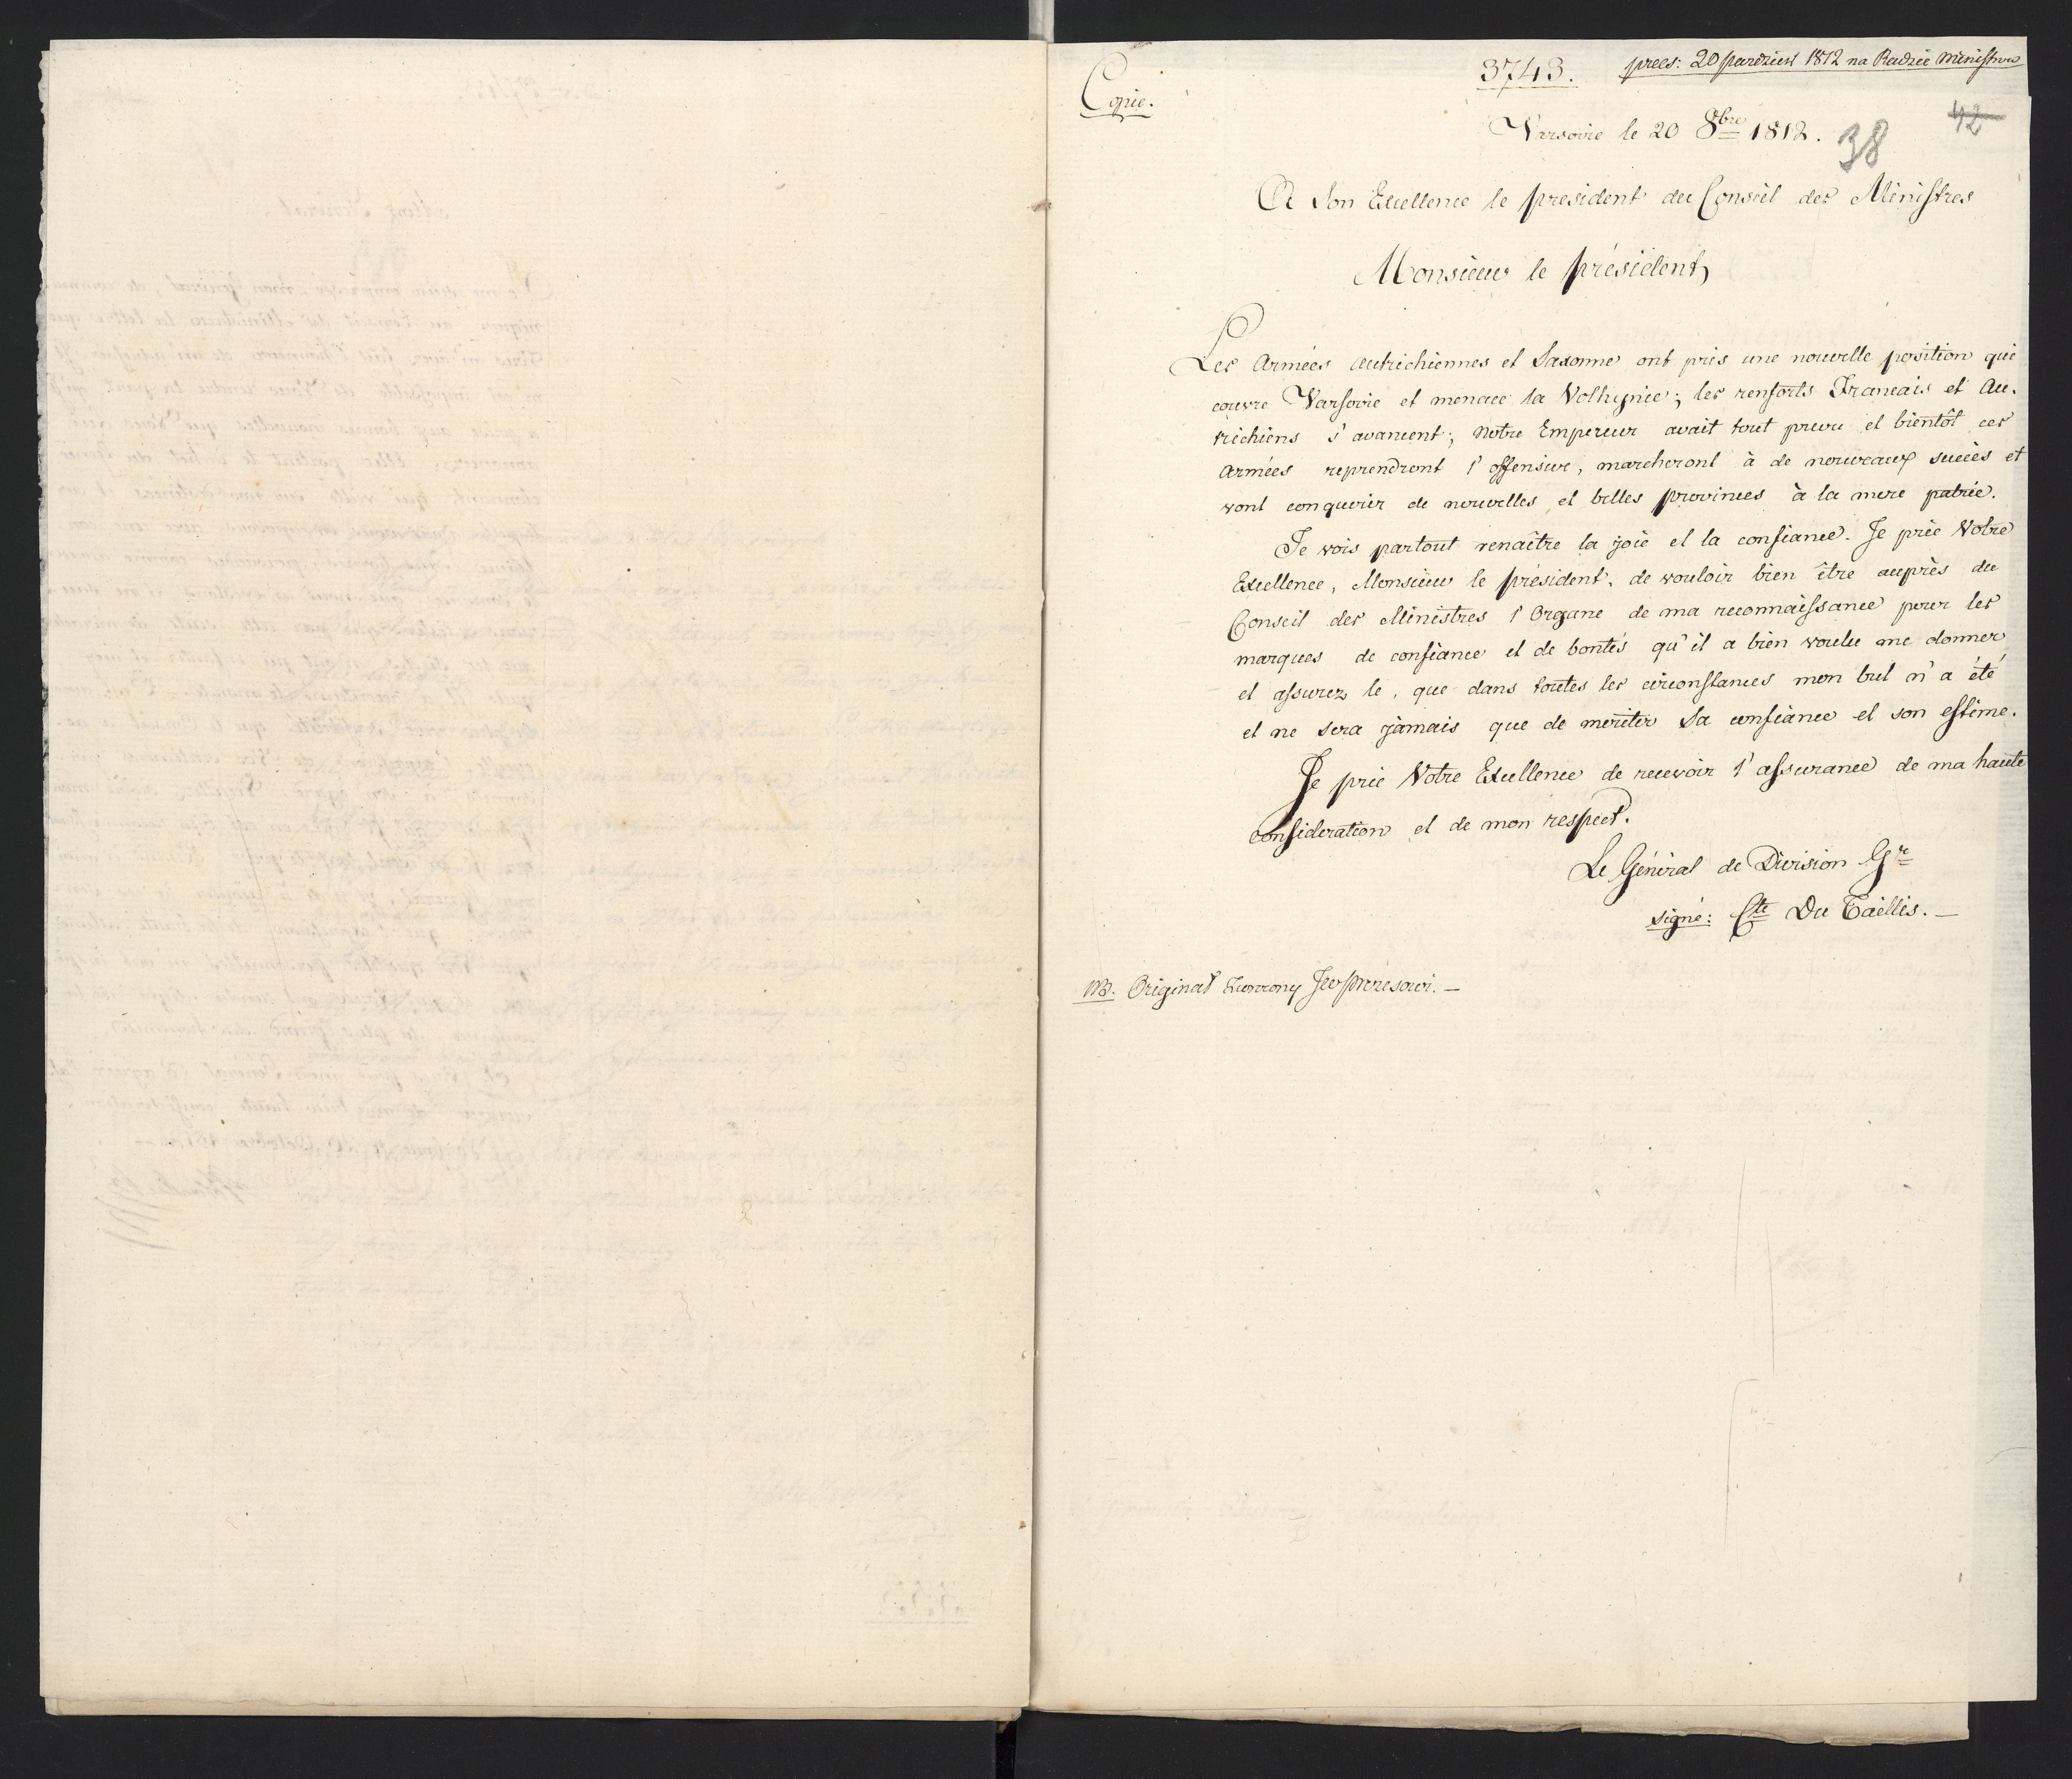 Copie.
3743.
praes: 20 paździer 1812 na Radzie Ministrów
42
38
Varsovie le 20 8bre 1812.
A Son Excellence le president du Conseil des Ministres
Monsieur le président,
Les Armées autrichiennes et Saxonne ont pris une nouvelle position qui
couvre Varsovie et menace la Volhynie; les renforts Francais et Au-
trichiens s'avancent; Notre Empereur avait tout prevu et bientôt ces
Armées reprendront l'offensive, marcheront à de nouveaux succès et
vont conquerir de nouvelles et belles provinces à la mere patrie.
Je vois partout renaître la joie et la confiance. Je prie Votre
Excellence, Monsieur le président, de vouloir bien être auprès du
Conseil des Ministres l'Organe de ma reconnaissance pour les
marques de confiance et de bontés qu'il a bien voulu me donner
et assurez le, que dans toutes les circonstances mon but n'a été
et ne sera jamais que de meriter Sa confiance et son estime.
Je prie Votre Excellence de recevoir l'assurance de ma haute
consideration et de mon respect.
Le Général de Division Gr
signé: Cte Du Taillis. —
NB. Original